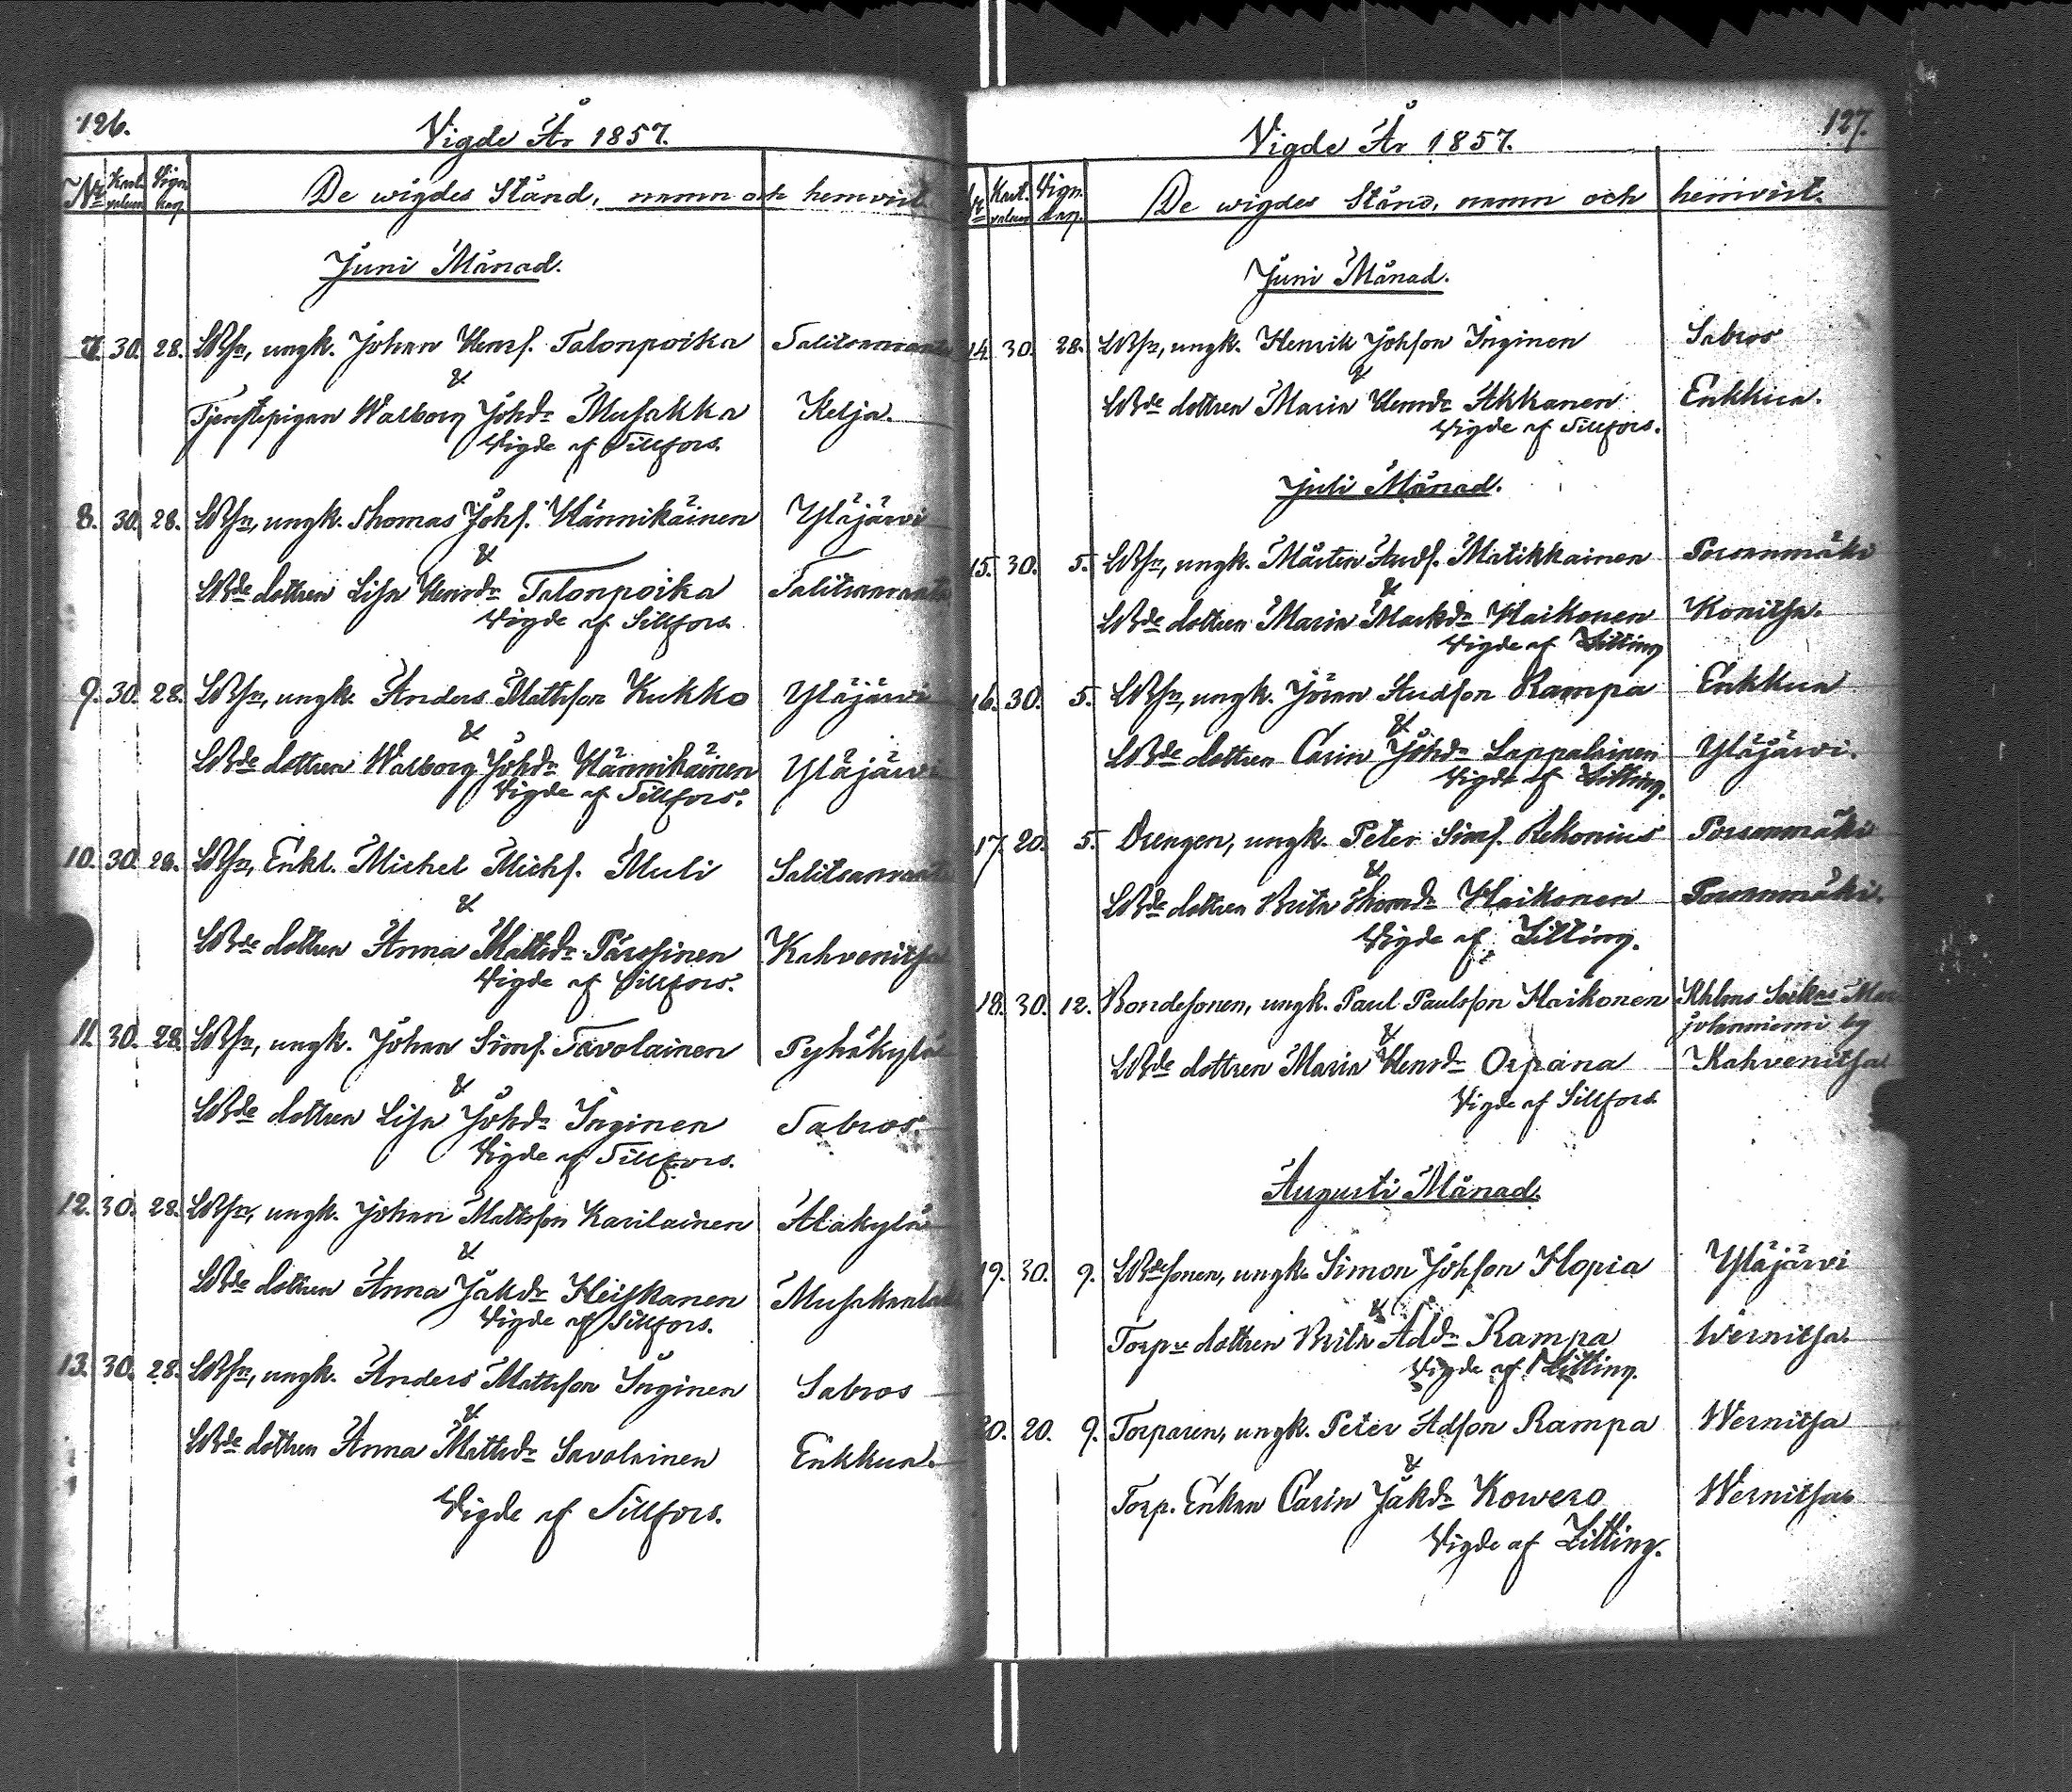 126.
Vigde År 1857.
Nr Kast. pelum Vign. dag De wigdes Stånd, namn och hemvist
Juni Månad.
7. 30. 28. LBsn, ungk. Johan Henrs. Talonpoika Salitsanranta
&
Tjenstepigan Walborg Johdr Musakka Kelja.
Vigde af Sillfors.
8. 30. 28. LBsn, ungk. Thomas Johs. Hännikäinen Yläjärvi
&
LBde dottren Lisa Henrdr Talonpoika Salitsanranta
Vigde af Sillfors.
9. 30. 28. LBsn, ungk. Anders Mattsson Kukko Yläjärvi
&
LBde dottren Walborg Johdr Hännikäinen Yläjärvi
Vigde af Sillfors.
10. 30. 28. LBsn, Enkl. Michel Michs. Muli Salitsanranta
&
LBde dottren Anna Mattsdr Pärssinen Kahvenitsa
Vigde af Sillfors.
11. 30. 28. LBsn, ungk. Johan Sims. Savolainen Pyhäkylä
&
LBde dottren Lisa Johdr Inginen Sabros.
Vigde af Sillfors.
12. 30. 28. LBsn, ungk. Johan Mattsson Karilainen Alakylä
&
LBde dottren Anna Jakdr Heiskanen
Vigde af Sillfors.
13. 30. 28. LBsn, ungk. Anders Mattsson Inginen Sabros
&
LBde dottren Anna Mattsdr Savolainen Enkkua.
Vigde af Sillfors.
127.
Vigde År 1857.
Nr Kast. pelum Vign. dag. De wigdes Stånd, namn och hemvist.
Juni Månad.
14. 30. 28. LBsn, ungk. Henrik Johsson Inginen Sabros
&
LBde dottren Maria Henrdr Akkanen Enkkua.
Vigde af Sillfors.
Juli Månad.
15. 30. 5. LBsn, ungk. Mårten Ands. Matikkainen Porsanmäki
&
LBde dottren Maria Markdr Haikonen Konitsa.
Vigde af Zitting
16. 30. 5. LBsn, ungk. Jöran Andson Rampa Enkkua
&
LBde dottren Carin Johdr Lappalainen Yläjärvi.
Vigde af Zitting.
17. 20. 5. Drengen, ungk. Peter Sims. Rekonius Porsanmäki
&
LBde dottren Brita Thomdr Haikonen Porsanmäki.
Vigde af Zitting.
18. 30. 12. Bondesonen, ungk. Paul Paulsson Haikonen
Johannismi by
&
LBde dottren Maria Henrdr Orpana Kahvenitsa
Vigde af Sillfors.
Augusti Månad.
19. 30. 9. LBdesonen, ungk. Simon Johsson Hopia Yläjärvi
&
Torpe dottren Brita Addr Rampa Wernitsa.
Vigde af Zitting.
20. 20. 9. Torparen, ungk. Peter Adson Rampa Wernitsa
&
Torp. Enkan Carin Jakdr Kowero Wernitsa.
Vigde af Zitting.